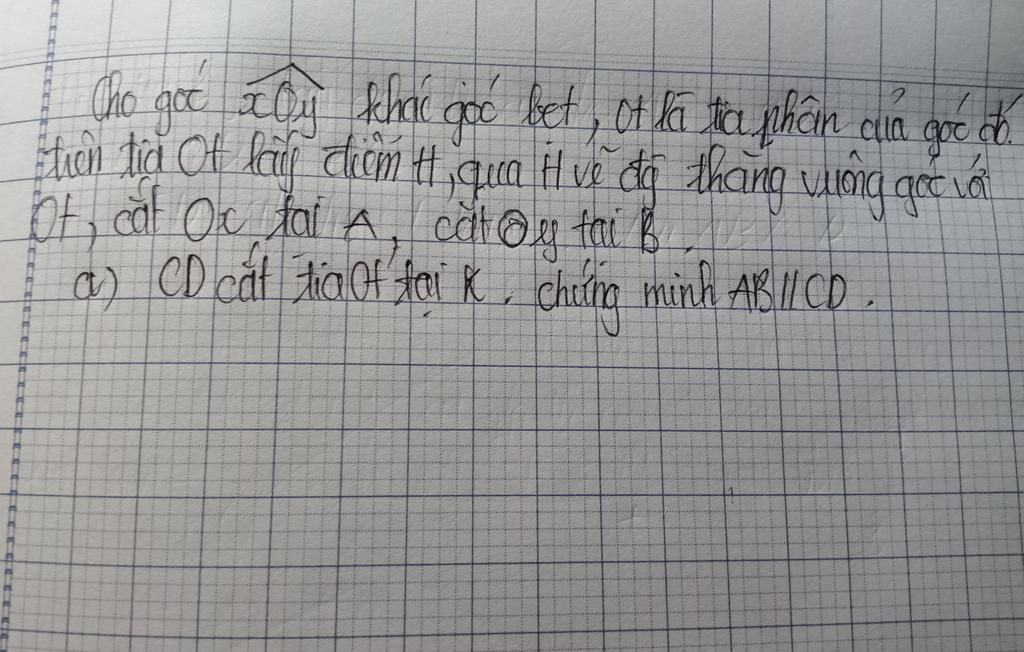 Cho góc xOy khác góc bẹt, Ot là tia phân của góc đó.
trên tia Ot lấy điểm H, qua H vẽ đg thẳng vuông góc với
Ot, cắt Ox tại A, cắt Oy tại B.
a) CD cắt tia Ot tại K. chứng minh AB//CD.